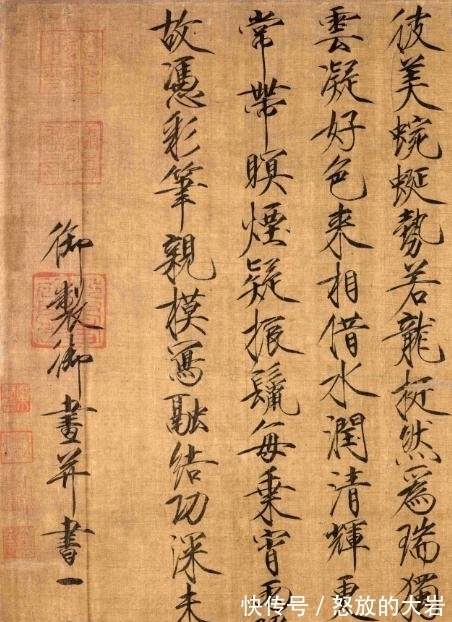 彼美蜿蜒勢若龍挺然爲瑞獨
雲凝好色来相借水潤清輝更
常帶暝煙疑振鬣每乘宵雨
故憑彩筆親模寫融結功深未
御製御畫并書一
快传号 / 怒放的大岩